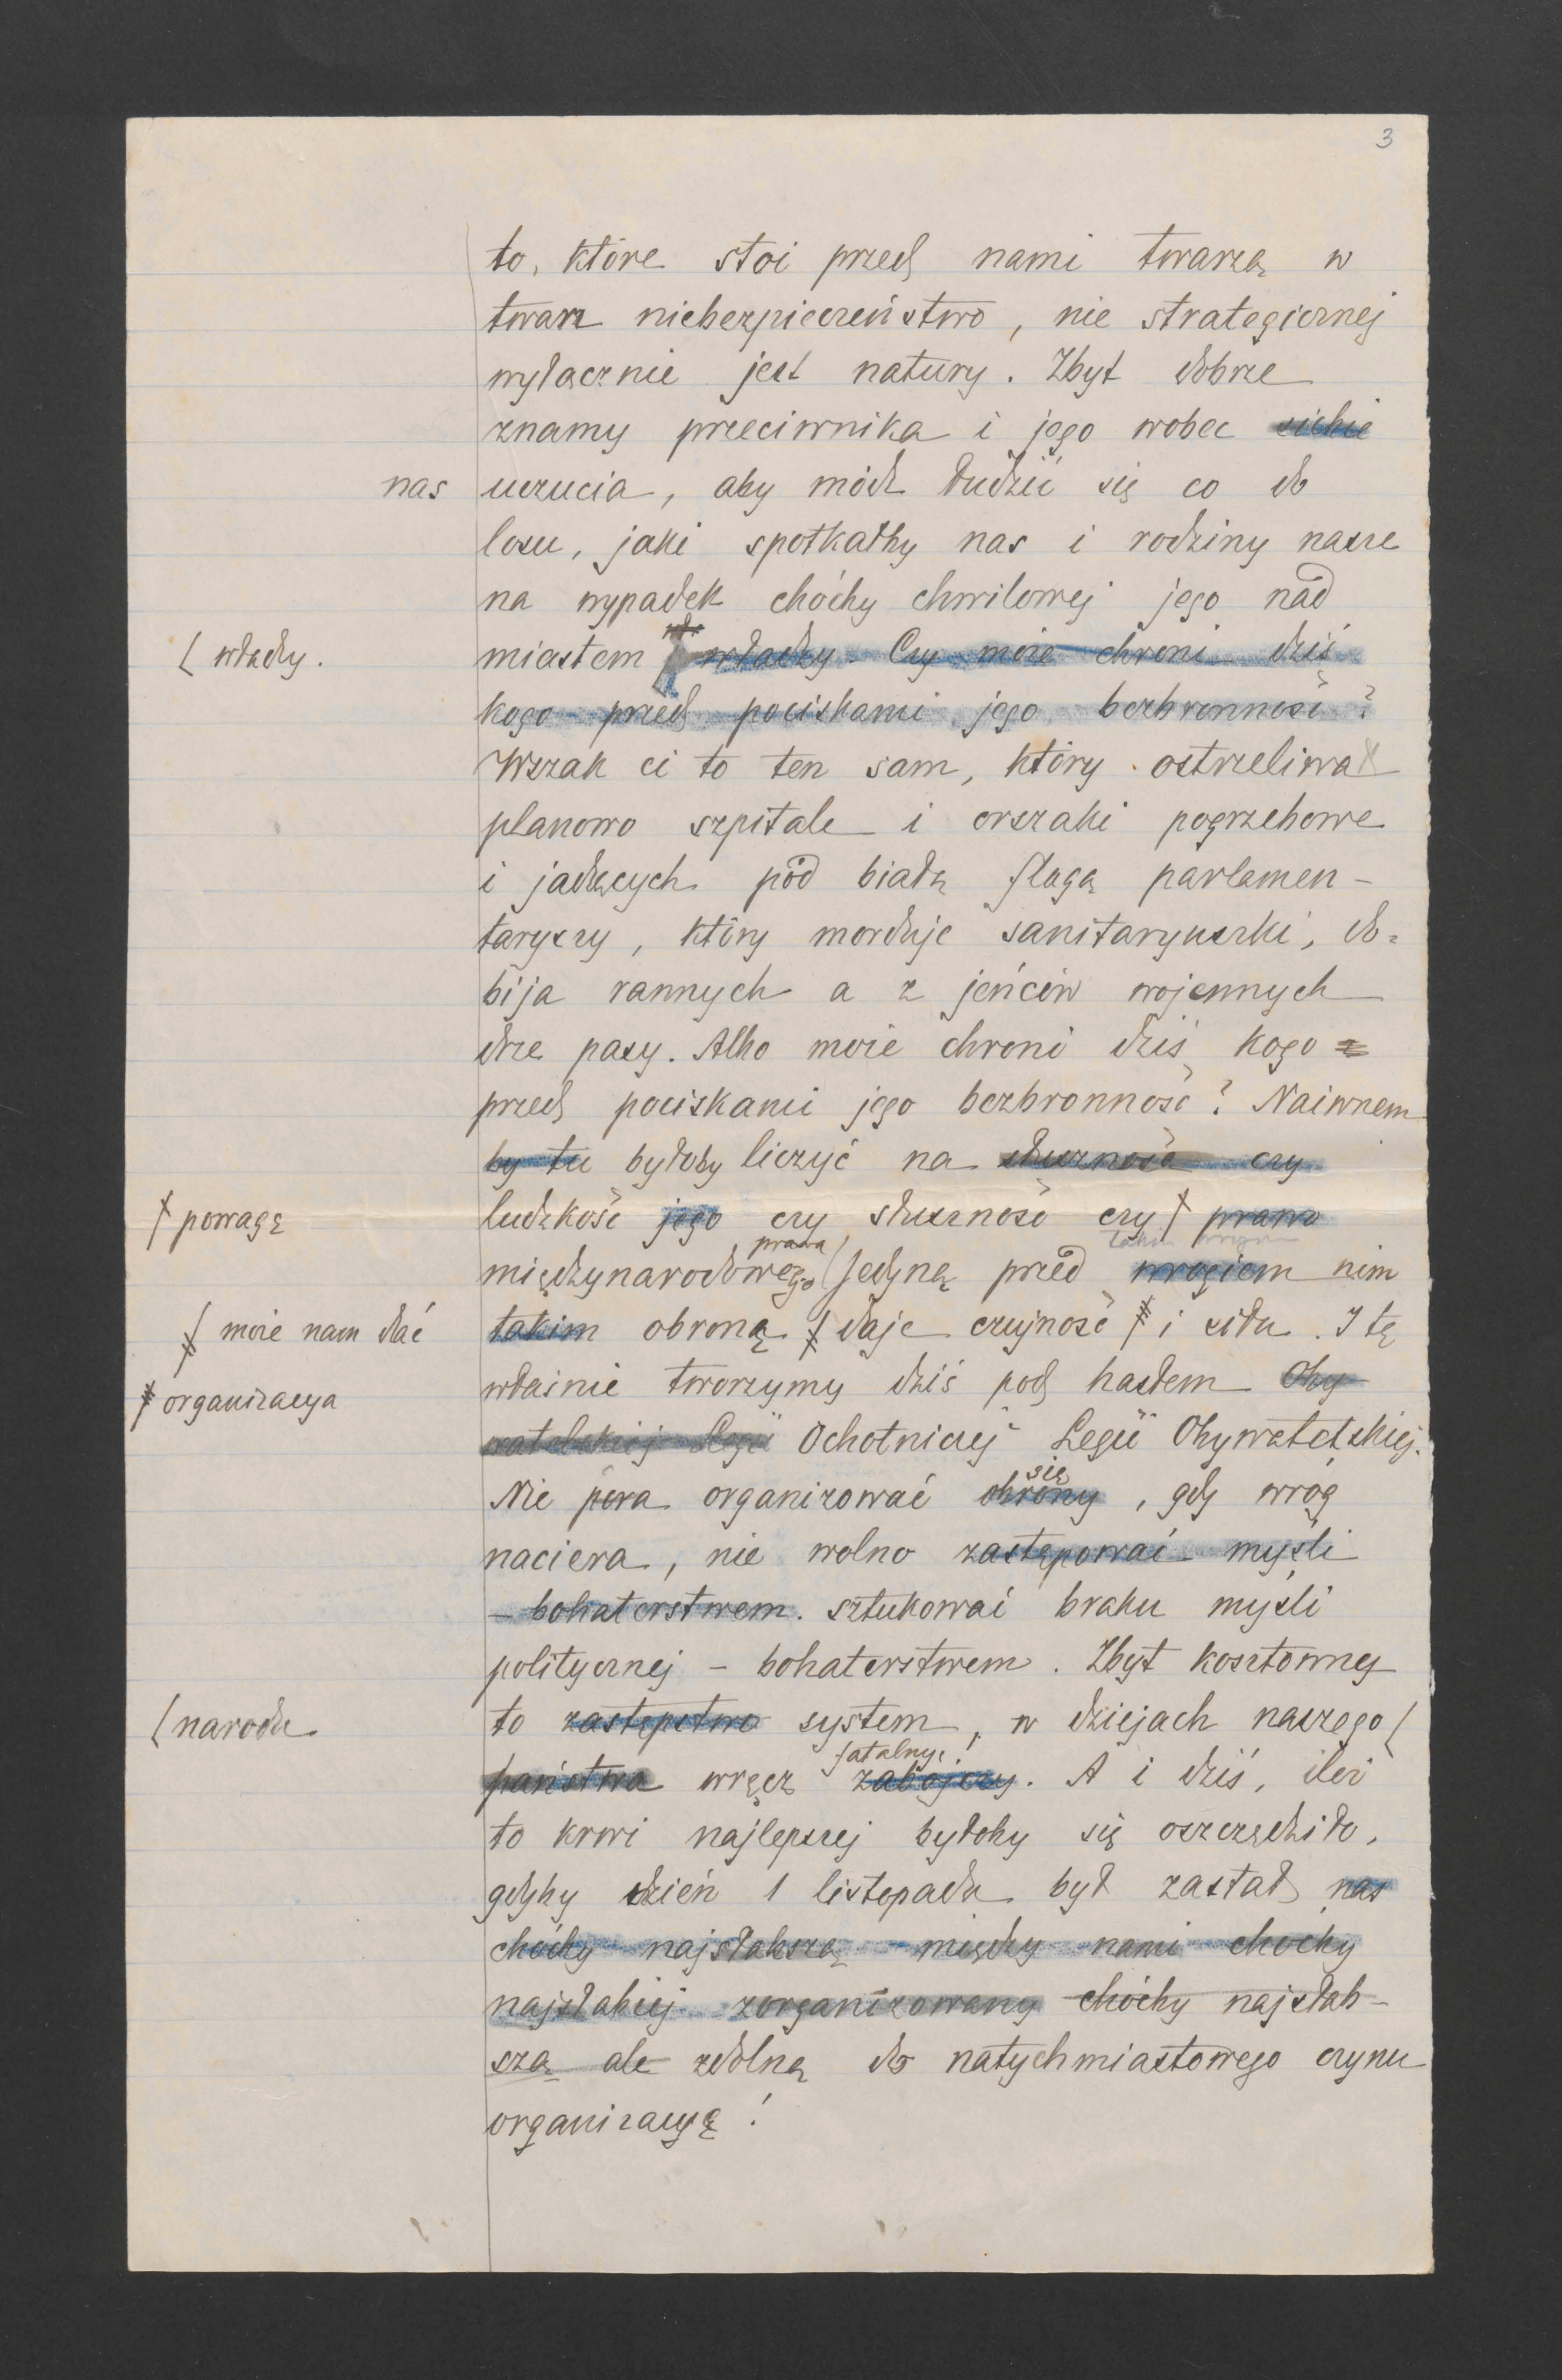 3
to, które stoi przed nami twarzą w
twarz niebezpieczeństwo, nie strategicznej
wyłącznie jest natury. Zbyt dobrze
znamy przeciwnika i jego wobec siebie
nas uczucia, aby módz łudzić się co do
losu, jaki spotkałby nas i rodziny nasze
na wypadek choćby chwilowej jego nad
⌊ władzy. miastem władzy. Czy może chroni dziś
kogo przed pociskami jego bezbronność?
Wszak ci to ten sam, który ostrzeliwał
planowo szpitale i orszaki pogrzebowe
i jadących pod białą flagą parlamen-
taryszy, który morduje sanitaryuszki, do-
bija rannych a z jeńców wojennych
drze pasy. Albo może chroni dziś kogo
przed pociskami jego bezbronność? Naiwnem
by tu byłoby liczyć na słuszność czy
ł powagę ludzkość jego czy słuszność czy ł prawo
prawa takim wrogiem
międzynarodowego ( Jedyną przed wrogiem nim
ł może nam dać takim obroną ł daje czujność ł i siła. I tę
ł organizacya właśnie tworzymy dziś pod hasłem Oby-
watelskiej Legii Ochotniczej Legii Obywatelskiej.
się
Nie pora organizować obrony, gdy wróg
naciera, nie wolno zastępować myśli
- bohaterstwem. sztukować braku myśli
politycznej - bohaterstwem. Zbyt kosztowny
⌊ narodu to zastępstwo system, w dziejach naszego ⌊
fatalny!
państwa wręcz zabójczy. A i dziś, ileż
to krwi najlepszej byłoby się oszczędziło,
gdyby dzień 1 listopada był zastał nas
choćby najsłabszą między nami choćby
najsłabiej zorganizowany choćby najsłab-
szą ale zdolną do natychmiastowego czynu
organizacyę!